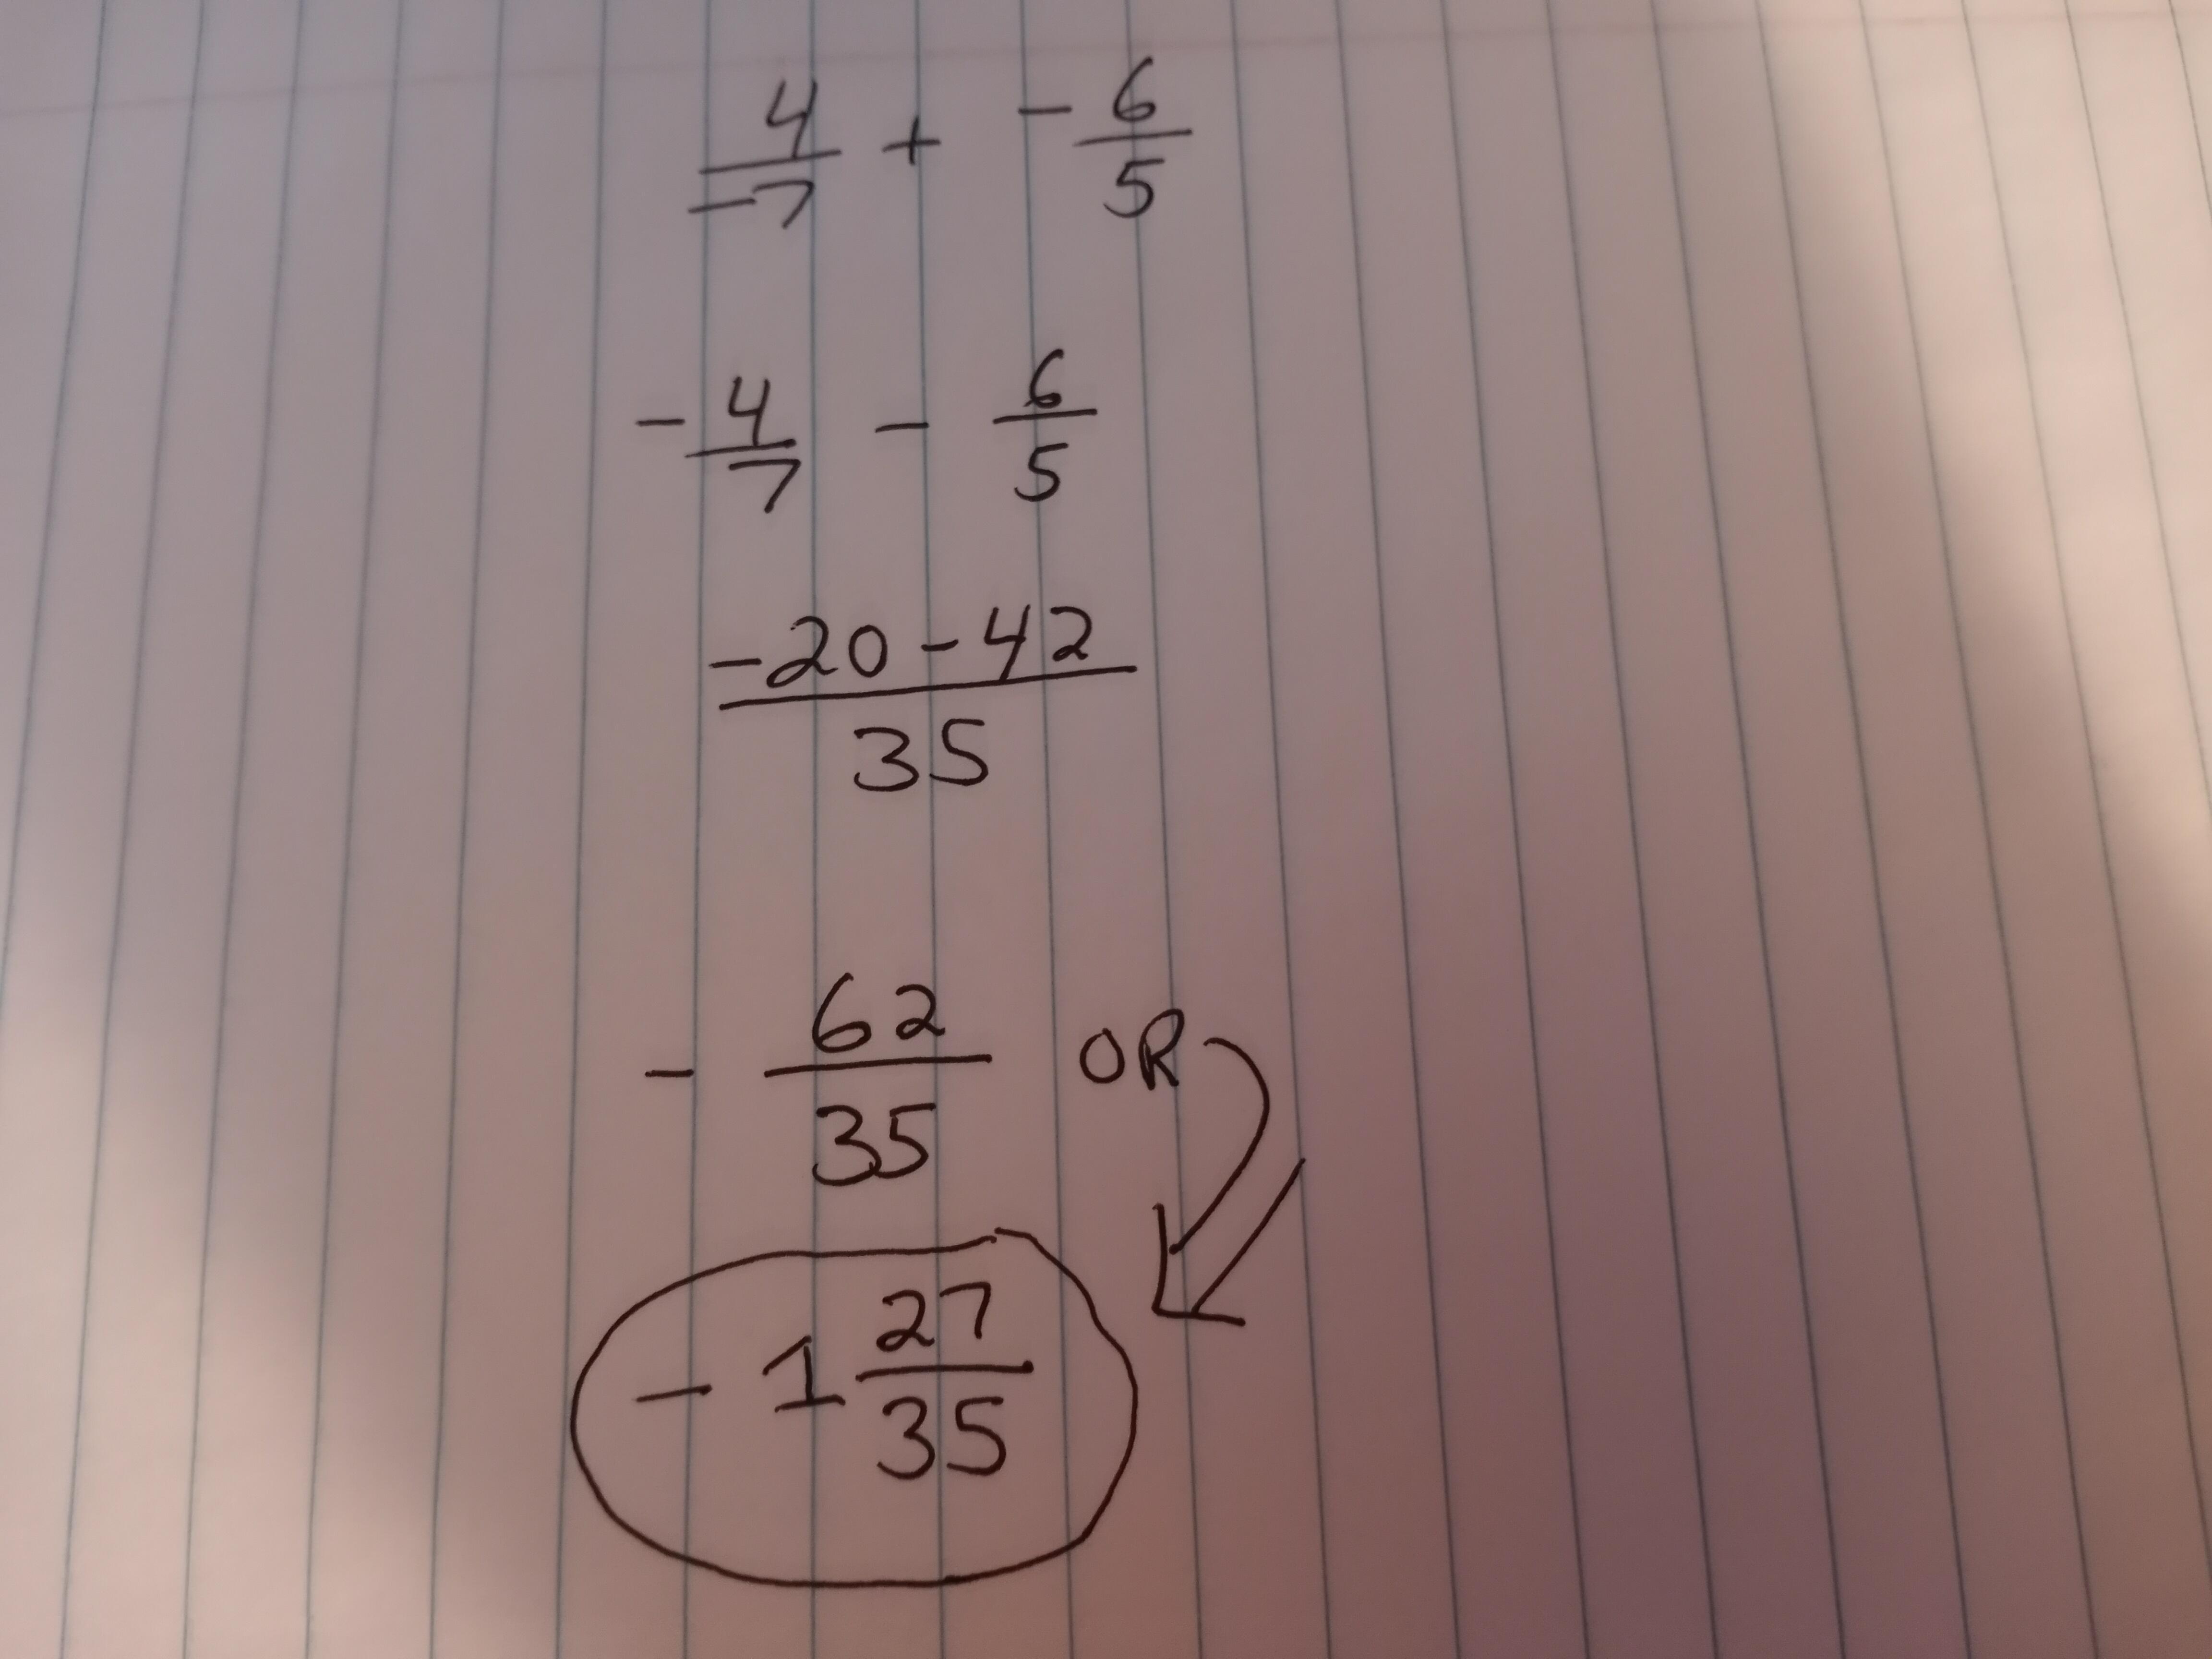 4/-7 + -6/5
-4/7 - 6/5
-20-42/35
-62/35 OR
-1 27/35